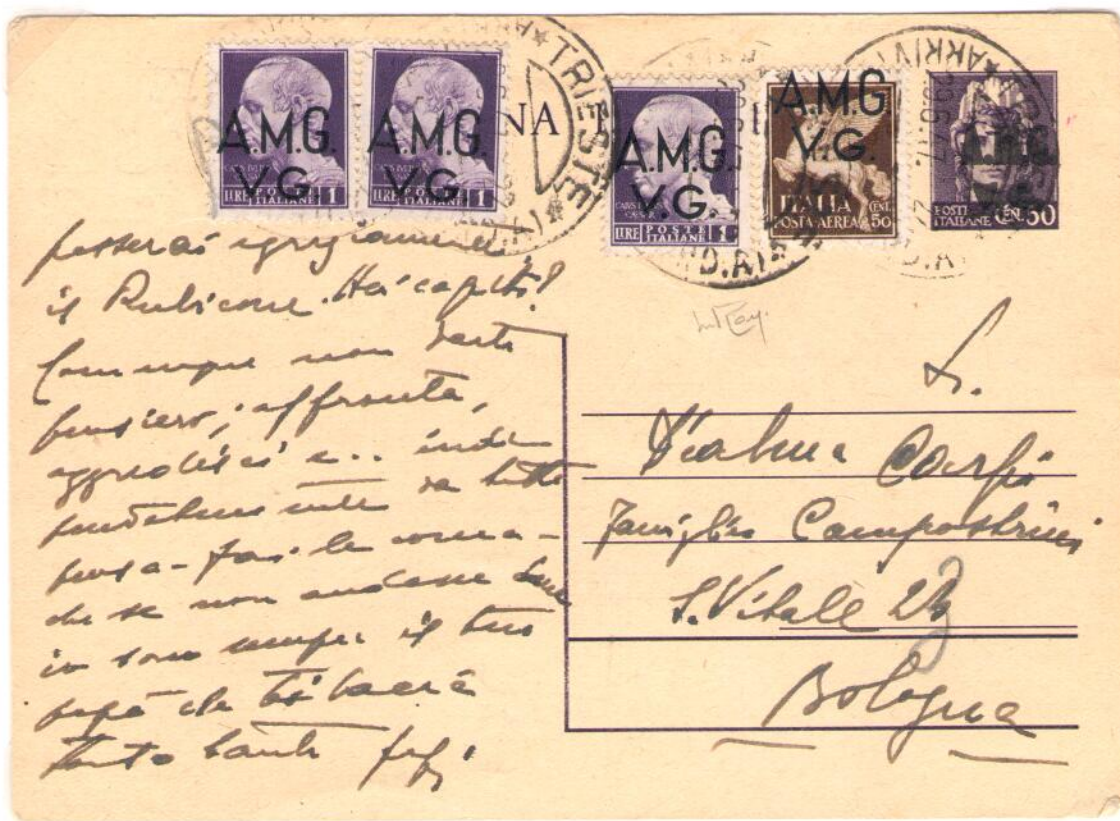 A.M.G.
V.G.
LIRE POSTE ITALIANE 1
A.M.G.
V.G.
LIRE POSTE ITALIANE 1
NA
TRIESTE
A.M.G.
V.G.
LIRE POSTE ITALIANE 1
A.M.G.
V.G.
ITALIA
POSTA-AEREA CENT. 50
ARRIVI
A.M.G.
V.G.
POSTE
ITALIANE CENT. 50
passerai egregiamente
il Rubicone. Hai capito?
Comunque non darti
pensiero, affronta,
aggredisci e.. indi
da tutto
pensa -
che se non andasse bene
io sono sempre il tuo
papà che ti bacia
tanto tanto
S.
Carpi
Famiglia Campostrini
S. Vitale 23
Bologna